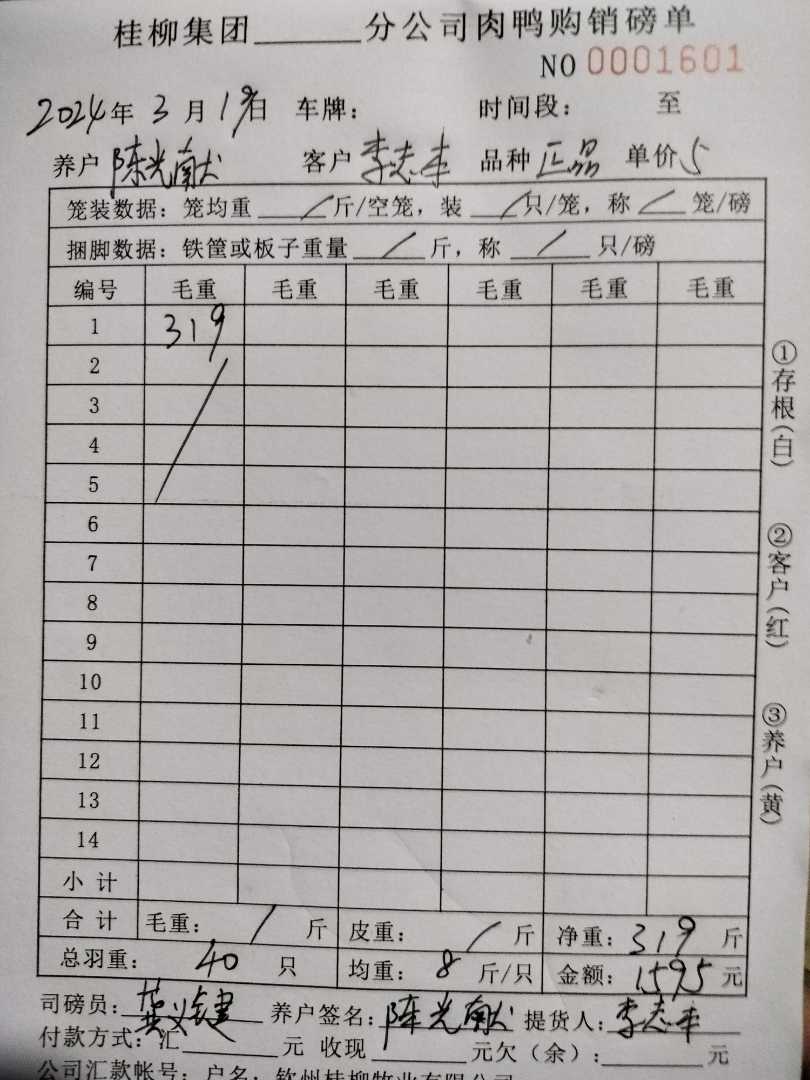 桂柳集团______分公司肉鸭购销磅单
NO 0001601
2024年 3 月 19日 车牌： 时间段： 至
养户 陈光献 客户 李志丰 品种 正品 单价 5
笼装数据：笼均重 / 斤/空笼，装 / 只/笼，称 / 笼/磅
捆脚数据：铁筐或板子重量 / 斤，称 / 只/磅
编号 毛重 毛重 毛重 毛重 毛重 毛重
1 319
2
3
4
5
6
7
8
9
10
11
12
13
14
小 计
合 计 毛重： / 斤 皮重： / 斤 净重：319 斤
总羽重： 40 只 均重： 8 斤/只 金额：1595 元
司磅员： 养户签名：陈光献 提货人：李志丰
付款方式：汇______元 收现______元欠（余）：______元
公司汇款帐号：户名：钦州桂柳牧业有限公司
①存根（白）
②客户（红）
③养户（黄）